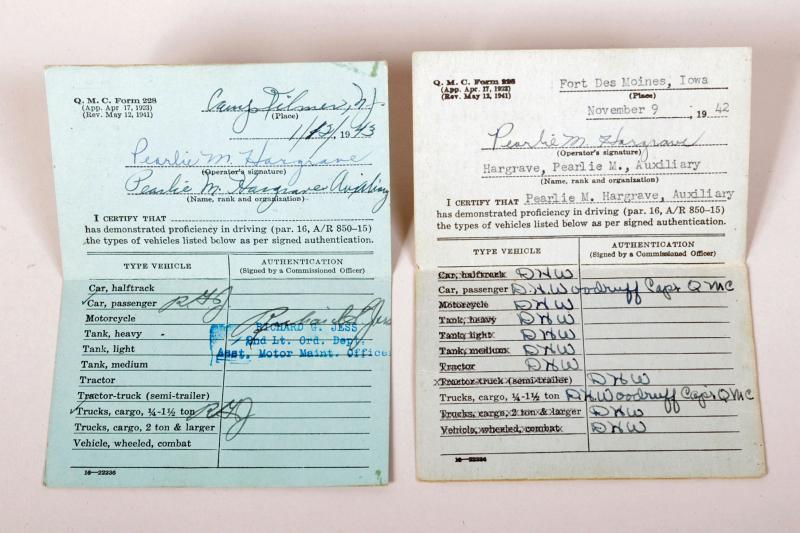 Q. M. C. Form 228
(App. Apr 17, 1923)
(Rev. May 12, 1941)
Camp Kilmer, N.J.
(Place)
1/12/, 1943
Pearlie M. Hargrave
(Operator's signature)
Pearlie M. Hargrave Auxiliary
(Name, rank and organization)
I CERTIFY THAT
has demonstrated proficiency in driving (par. 16, A/R 850-15)
the types of vehicles listed below as per signed authentication.
TYPE VEHICLE AUTHENTICATION
(Signed by a Commissioned Officer)
Car, halftrack
Car, passenger RGJ
Motorcycle Richard G. Jess
Tank, heavy RICHARD G. JESS
Tank, light 2nd Lt. Ord. Dept.
Tank, medium Asst. Motor Maint. Officer
Tractor
Tractor-truck (semi-trailer)
Trucks, cargo, ¼-1½ ton RGJ
Trucks, cargo, 2 ton & larger
Vehicle, wheeled, combat
16-22236
Q. M. C. Form 228
(App. Apr 17, 1923)
(Rev. May 12, 1941)
Fort Des Moines, Iowa
(Place)
November 9, 1942
Pearlie M. Hargrave
(Operator's signature)
Hargrave, Pearlie M., Auxiliary
(Name, rank and organization)
I CERTIFY THAT Pearlie M. Hargrave, Auxiliary
has demonstrated proficiency in driving (par. 16, A/R 850-15)
the types of vehicles listed below as per signed authentication.
TYPE VEHICLE AUTHENTICATION
(Signed by a Commissioned Officer)
Car, halftrack DHW
Car, passenger D.H. Woodruff Capt QMC
Motorcycle DHW
Tank, heavy DHW
Tank, light DHW
Tank, medium DHW
Tractor DHW
Tractor-truck (semi-trailer) DHW
Trucks, cargo, ¼-1½ ton D.H. Woodruff Capt QMC
Trucks, cargo, 2 ton & larger DHW
Vehicle, wheeled, combat DHW